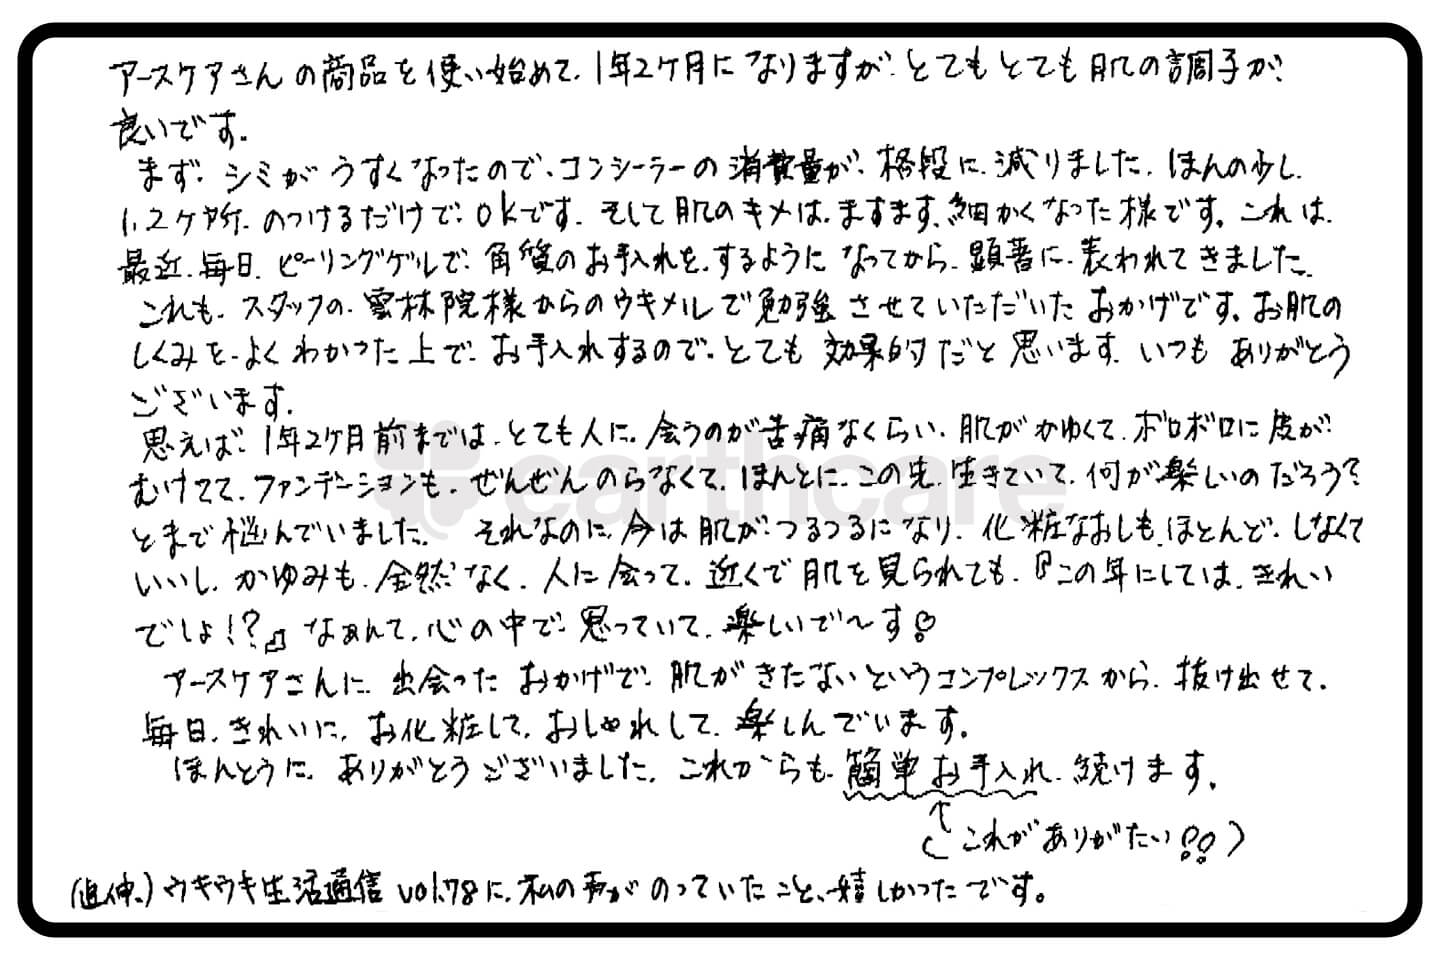 アースケアさんの商品を使い始めて、1年2ケ月になりますが、とてもとても肌の調子が、
良いです。
まず、シミがうすくなったので、コンシーラーの消費量が、格段に、減りました。ほんの少し、
1、2ケ所、のつけるだけで、OKです。そして肌のキメは、ますます、細かくなった様です。これは、
最近、毎日、ピーリングゲルで、角質のお手入れを、するようになってから、顕著に、表われてきました。
これも、スタッフの、雲林院様からのウキメルで勉強させていただいたおかげです。お肌の
しくみを、よくわかった上で、お手入れするので、とても効果的だと思います。いつもありがとう
ございます。
思えば、1年2ケ月前までは、とても人に、会うのが苦痛なくらい、肌がかゆくて、ボロボロに皮が
むけてて、ファンデーションも、ぜんぜんのらなくて、ほんとに、この先、生きていて、何が楽しいのだろう?
とまで悩んでいました。それなのに、今は肌が、つるつるになり、化粧なおしも、ほとんど、しなくて
いいし、かゆみも、全然なく、人に会って、近くで肌を見られても、『この年にしては、きれい
でしょ!?』なぁんて、心の中で、思っていて、楽しいで〜す♡
アースケアさんに、出会ったおかげで、肌がきたないというコンプレックスから、抜け出せて、
毎日、きれいに、お化粧して、おしゃれして、楽しんでいます。
ほんとうに、ありがとうございました。これからも、簡単お手入れ、続けます。
↑
(これがありがたい!!)
(追伸、)ウキウキ生活通信vol.78に、私の声がのっていたこと、嬉しかったです。
earthcare